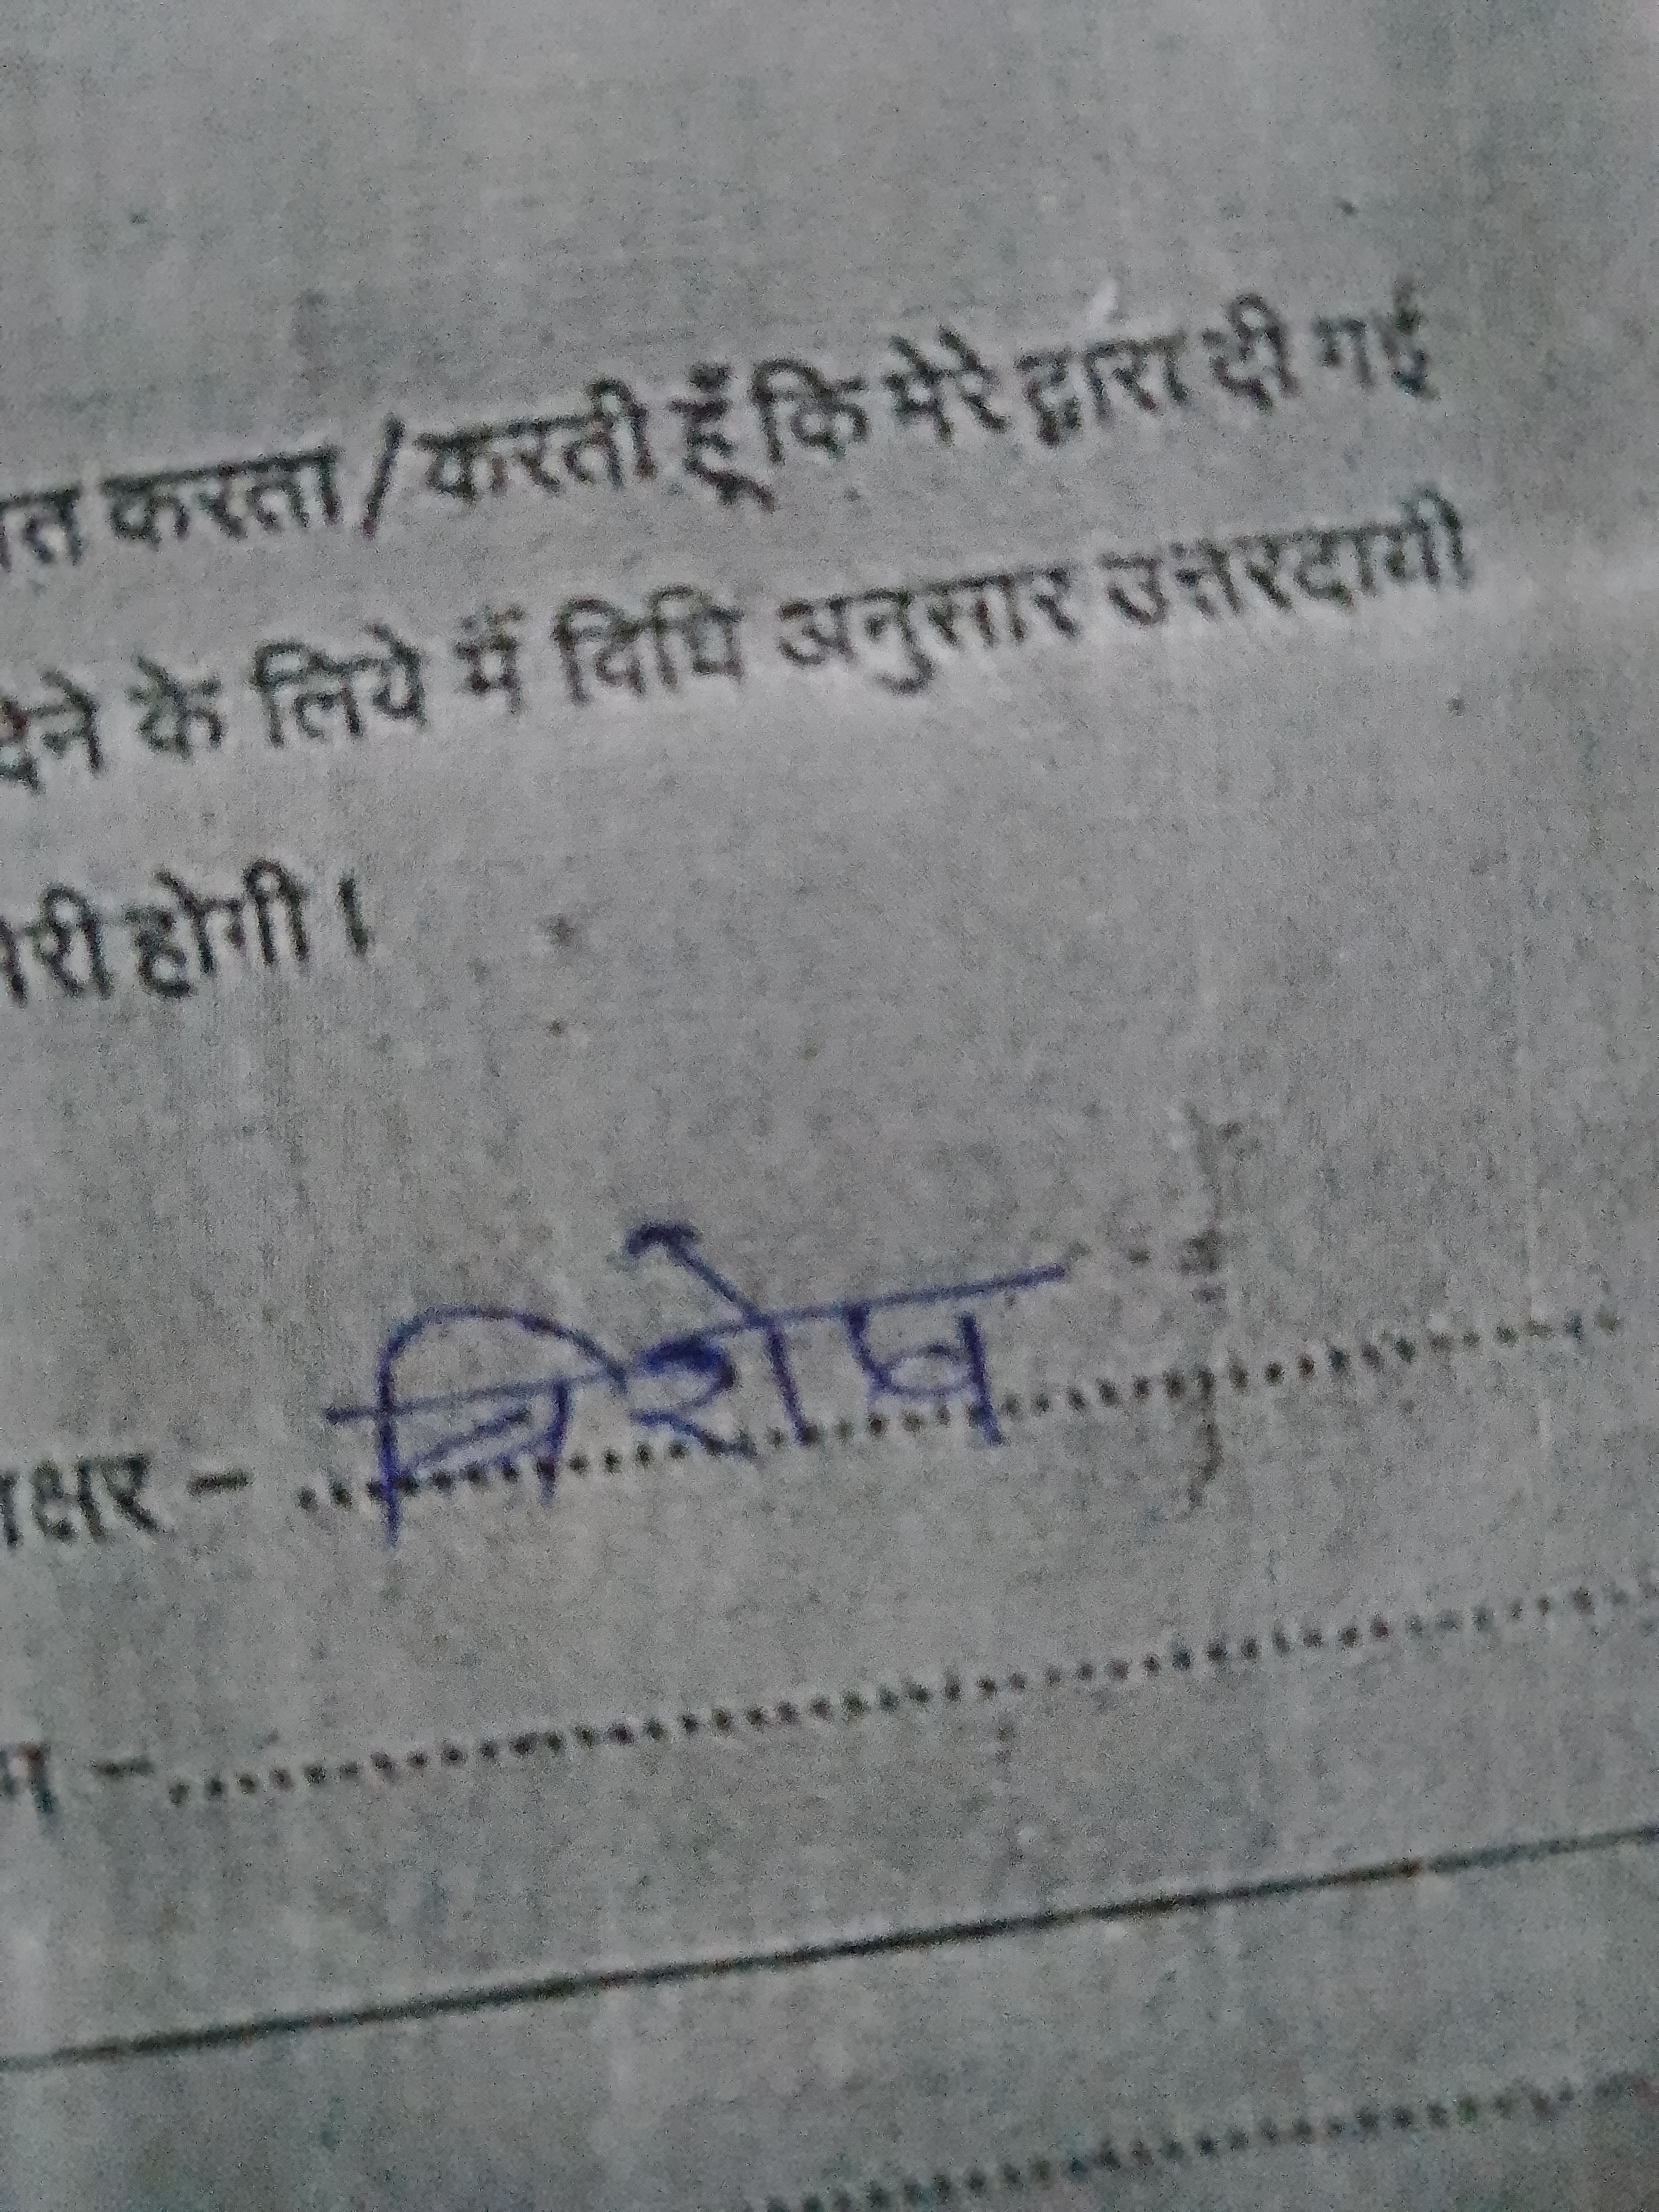 त करता / करती हूँ कि मेरे द्वारा दी गई
देने के लिये मैं विधि अनुसार उत्तरदायी
मेरी होगी।
क्षर -